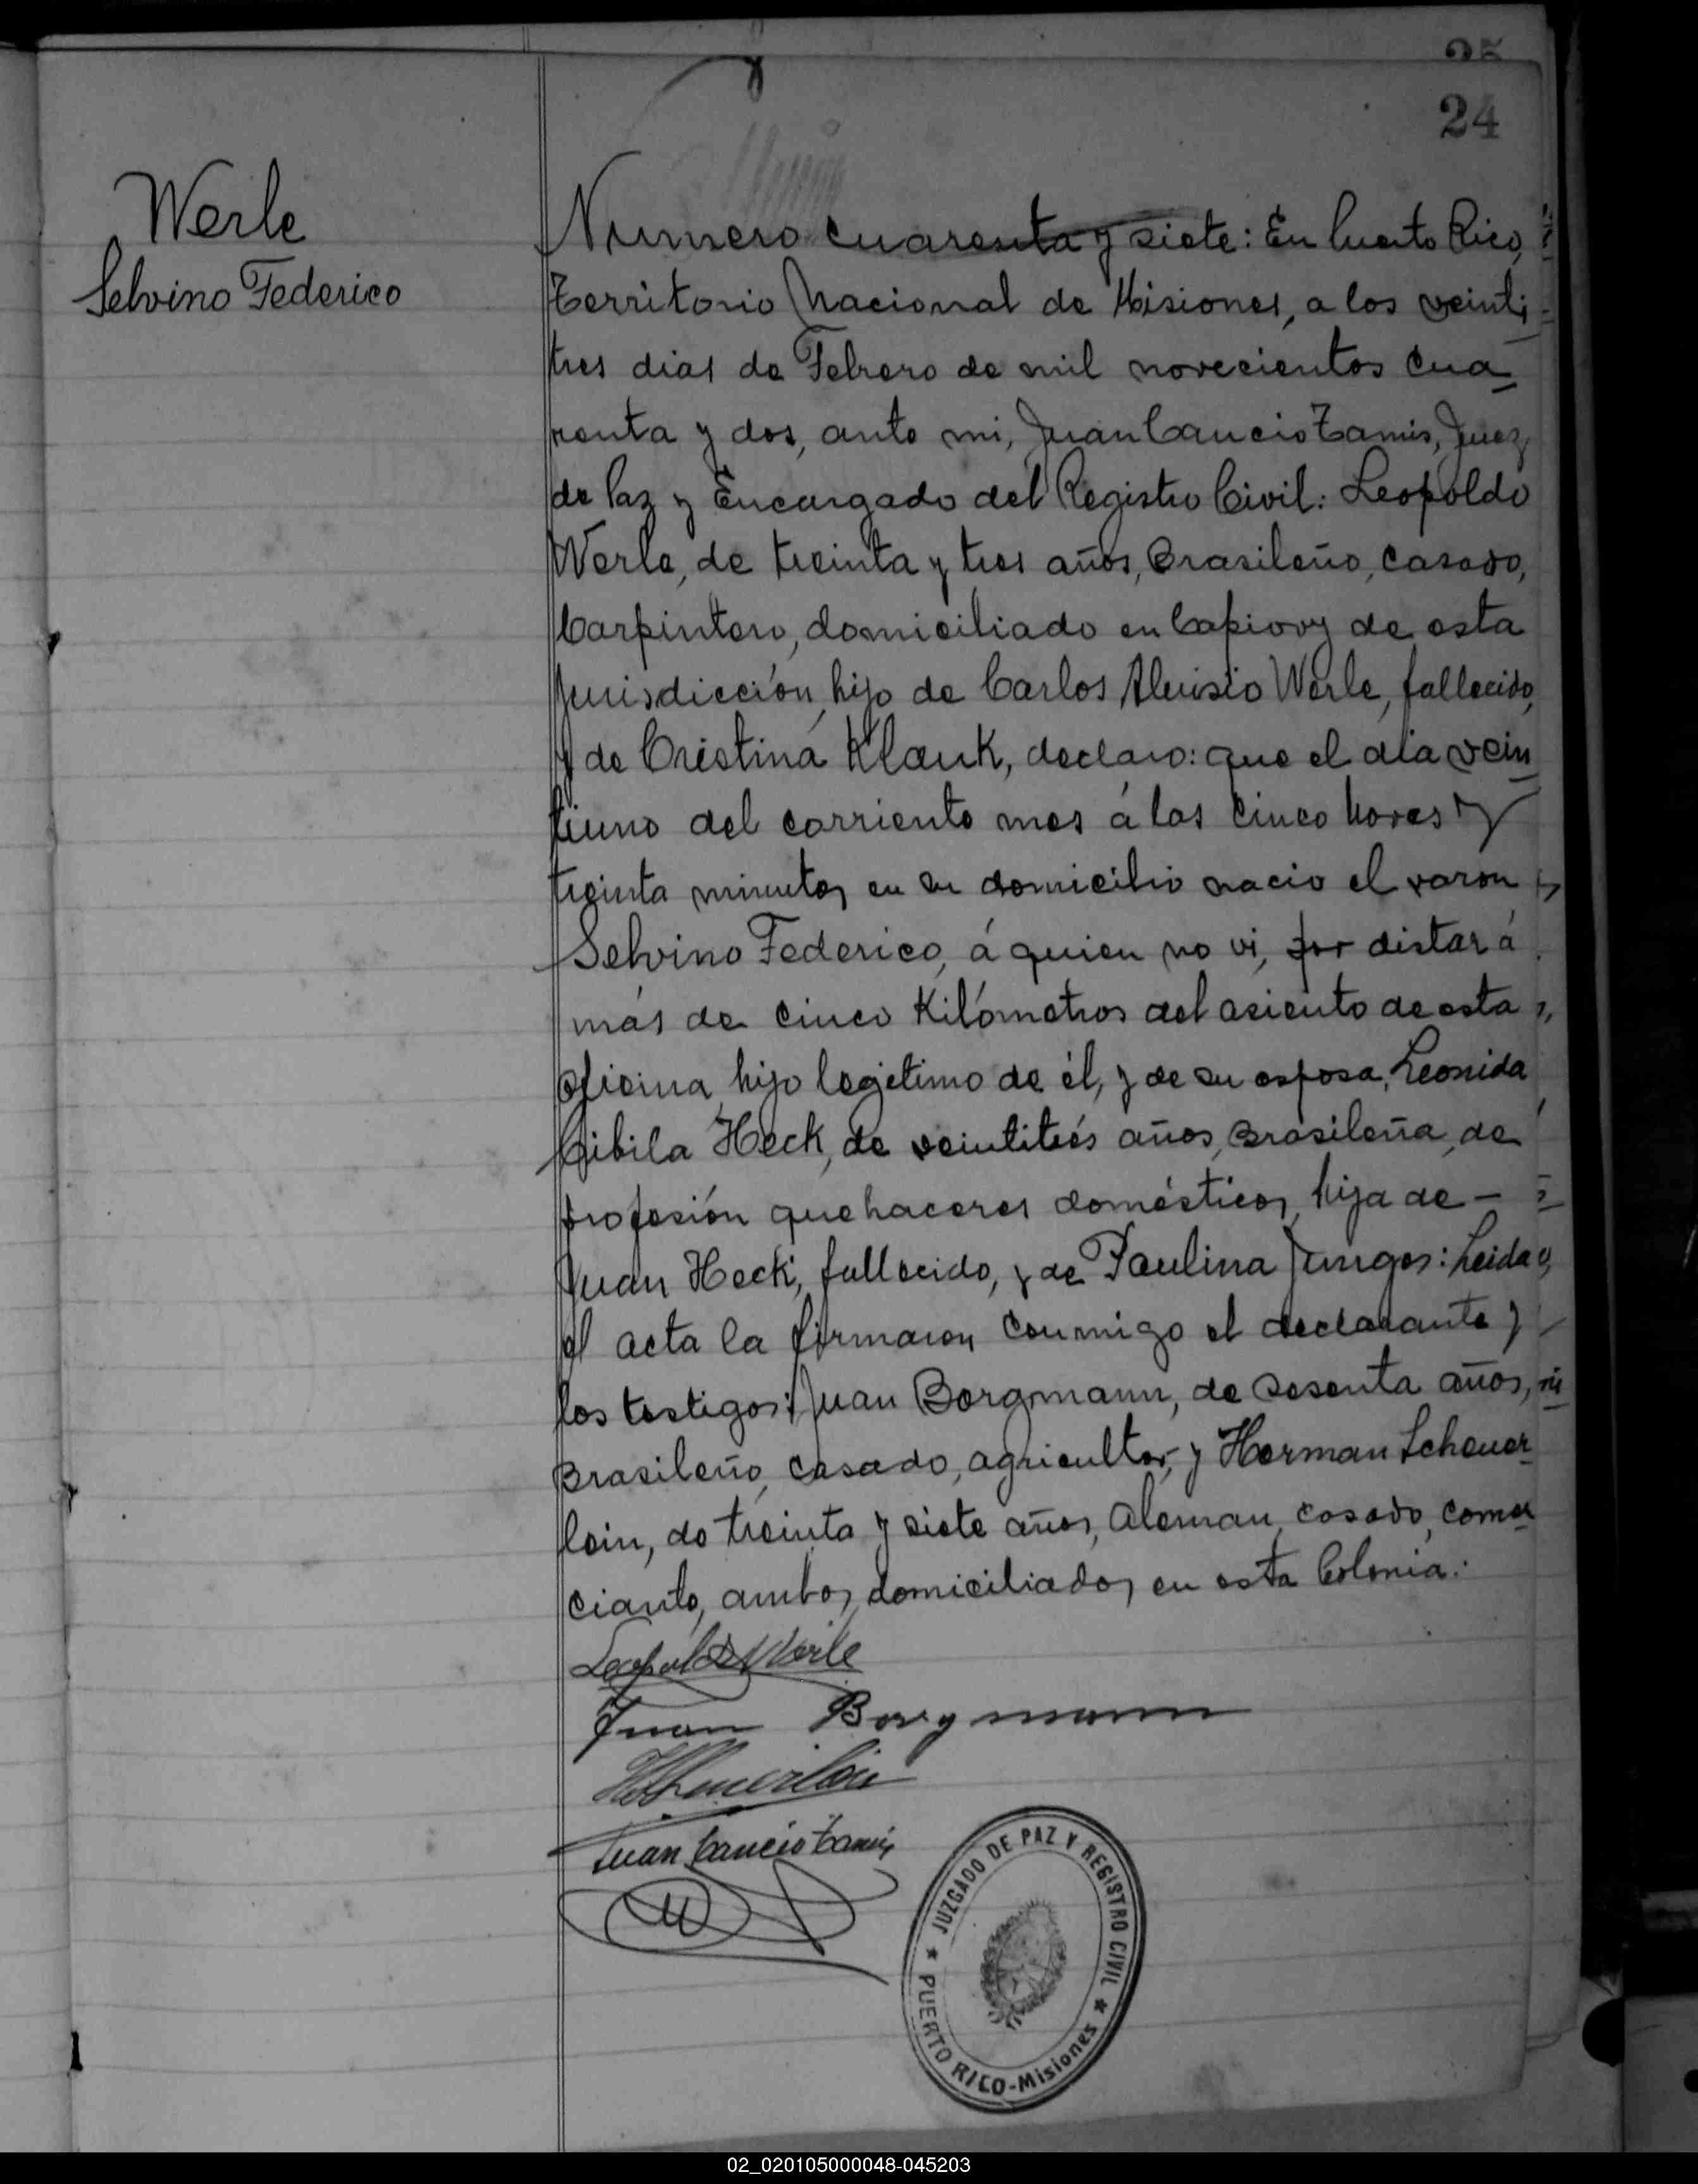 25
24
Werle
Selvino Federico
Numero cuarenta y siete: En Puerto Rico,
Territorio Nacional de Misiones, a los veinti
tres dias de Febrero de mil novecientos cua
renta y dos, ante mi, Juan Cancio Tamis, Juez
de Paz y Encargado del Registro Civil: Leopoldo
Werle, de treinta y tres años, Brasileño, casado,
Carpintero, domiciliado en Capiovy de esta
Jurisdicción, hijo de Carlos Aluisio Werle, fallecido,
y de Cristina Klauk, declaro: que el dia vein
tiuno del corriente mes á las cinco horas y
treinta minutos en su domicilio nacio el varon
Selvino Federico, á quien no vi, por distar á
más de cinco Kilómetros del asiento de esta
Oficina, hijo legitimo de él, y de su esposa, Leonida
Cibila Heck, de veintitrés años, Brasileña, de
profesión quehaceres domésticos, hija de -
Juan Heck, fallecido, y de Paulina Junges: Leida
el acta la firmaron conmigo el declarante y
los testigos: Juan Borgmann, de sesenta años,
Brasileño, casado, agricultor, y Herman Scheuer
lein, de treinta y siete años, Aleman, casado, comer
ciante, ambos domiciliados en esta Colonia:
Leopoldo Werle
Juan Borgmann
HScheuerlein
Juan Cancio Tamis
JUZGADO DE PAZ Y REGISTRO CIVIL
PUERTO RICO-Misiones
02_020105000048-045203